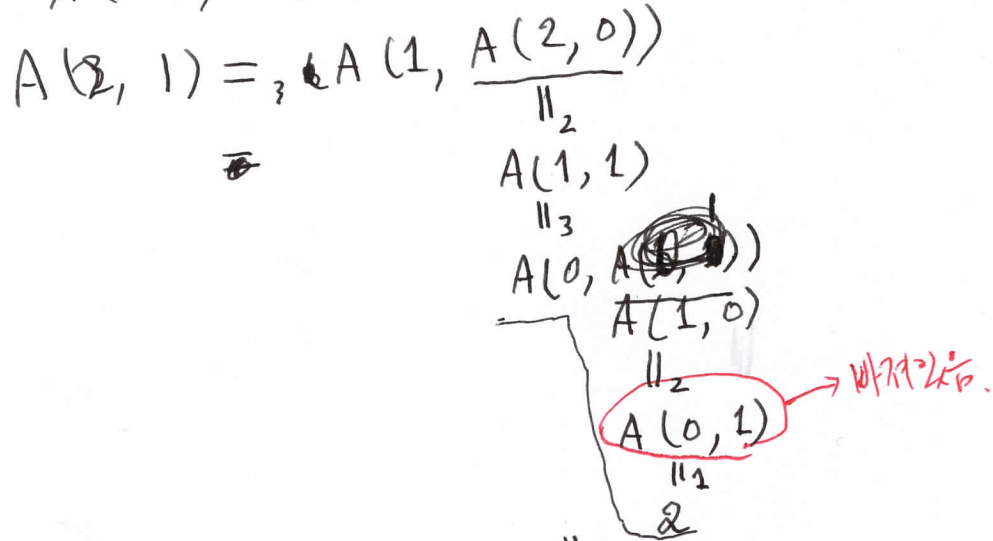 A(2, 1) =₃ A(1, A(2, 0))
||₂
=
A(1, 1)
||₃
A(0, A(
A(1, 0)
||₂
A(0, 1) → 빠져있음.
||₁
2